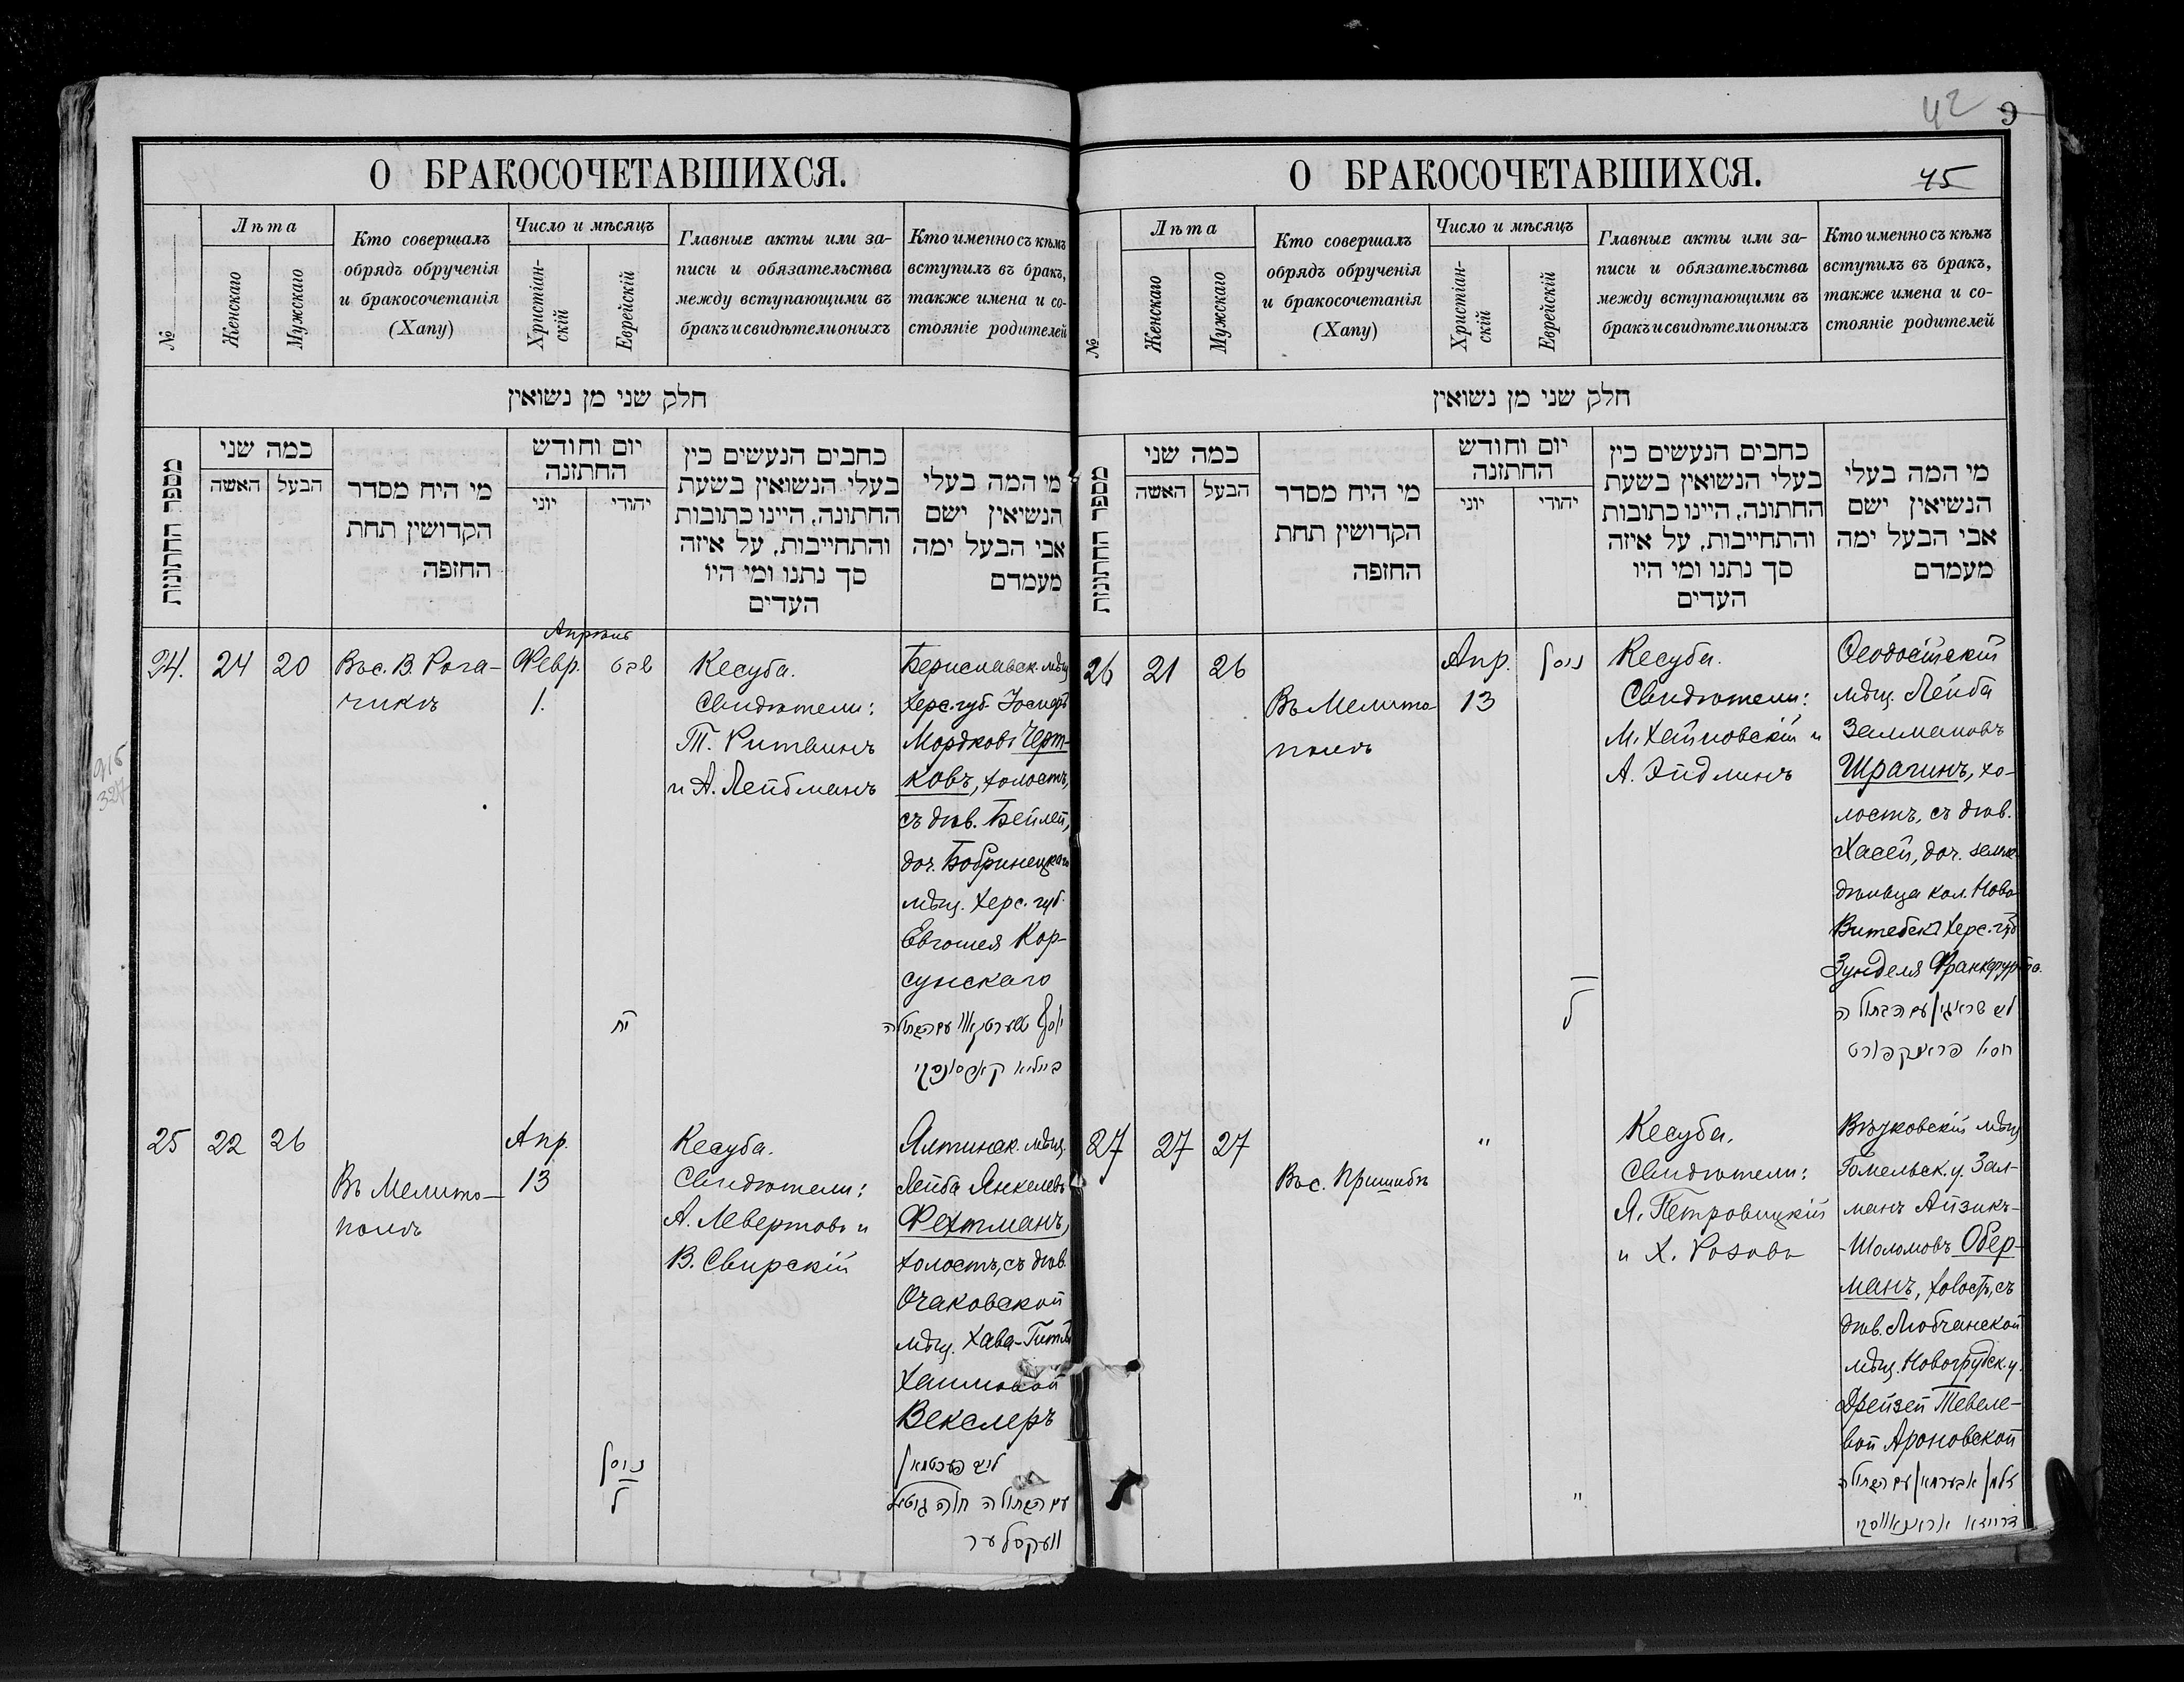 О БРАКОСОЧЕТАВШИХСЯ.
№
Лѣта
Женскаго
Мужскаго
Кто совершалъ
обрядъ обрученія
и бракосочетанія
(Хапу)
Число и мѣсяцъ
Христіан-
скій
Еврейскій
Главные акты или за-
писи и обязательства
между вступающими въ
бракъ и свидѣтели оныхъ
Кто именно съ кѣмъ
вступилъ въ бракъ,
также имена и со-
стояніе родителей
חלק שני מן נשואין
מספר החתונות
כמה שני
האשה
הבעל
מי היח מסדר
הקדושין תחת
החזפה
יום וחודש
החתזנה
יוני
יהודי
כחבים הנעשים כין
בעלי הנשואין בשעת
החתונה, היינו כתובות
והתחייבות, על איזה
סך נתנו ומי היו
העדים
מי המה בעלי
הנשיאין ישם
אבי הבעל ימה
מעמדם
Апрѣль
24.
24
20
Въ с. В. Рога-
чикъ
Февр.
1.
שבט
יח
Кесуба.
Свидѣтели:
Т. Ритвинъ
и А. Лейбманъ
Бериславск. мѣщ.
Херс. губ. Іосифъ
Мордковъ Черт-
ковъ, холостъ,
съ дѣв. Бейлей,
доч. Бобринецкаго
мѣщ. Херс. губ.
Евгошея Кор-
сунскаго
עם הבתולה
ביילא קארסונסקי
916
327
25
22
26
Въ Мелито-
полѣ
Апр.
13
ניסן
ל
Кесуба.
Свидѣтели:
А. Левертовъ и
В. Свирскій
Ялтинск. мѣщ.
Лейба Янкелевъ
Фехтманъ,
холостъ, съ дѣв.
Очаковской
мѣщ. Хава-Гитля
Хаимовой
Векслеръ
ליב פעכטמאן
עם הבתולה חוה גיטל
וועקסלער
42
9
О БРАКОСОЧЕТАВШИХСЯ.
45
№
Лѣта
Женскаго
Мужскаго
Кто совершалъ
обрядъ обрученія
и бракосочетанія
(Хапу)
Число и мѣсяцъ
Христіан-
скій
Еврейскій
Главные акты или за-
писи и обязательства
между вступающими въ
бракъ и свидѣтели оныхъ
Кто именно съ кѣмъ
вступилъ въ бракъ,
также имена и со-
стояніе родителей
חלק שני מן נשואין
מספר החתונות
כמה שני
האשה
הבעל
מי היח מסדר
הקדושין תחת
החזפה
יום וחודש
החתזנה
יוני
יהודי
כחבים הנעשים כין
בעלי הנשואין בשעת
החתונה, היינו כתובות
והתחייבות, על איזה
סך נתנו ומי היו
העדים
מי המה בעלי
הנשיאין ישם
אבי הבעל ימה
מעמדם
26
21
26
Въ Мелито-
полѣ
Апр.
13
ניסן
ל
Кесуба.
Свидѣтели:
М. Хаймовскій и
А. Эйдлинъ
Ѳеодосійскій
мѣщ. Лейба
Залмановъ
Шрагинъ, хо-
лостъ, съ дѣв.
Хасей, доч. земле-
дѣльца кол. Ново
Витебскъ Херс. губ.
Зунделя Франкфурта.
ליב שראגין עם הבתולה
חסיא פראנקפורט
27
27
27
Въ с. Пришибъ
"
"
Кесуба.
Свидѣтели:
Я. Петровицкій
и Х. Розовъ
мѣщ.
Гомельск. у. Зал-
манъ Айзикъ-
-Шоломовъ Обер-
манъ, холостъ, съ
дѣв. Любчанской
мѣщ. Новогрудск. у.
Дрейзей Тевеле-
вой Ароновской
זלמן אבערמאן עם הבתולה
דרייזא אראנאווסקי